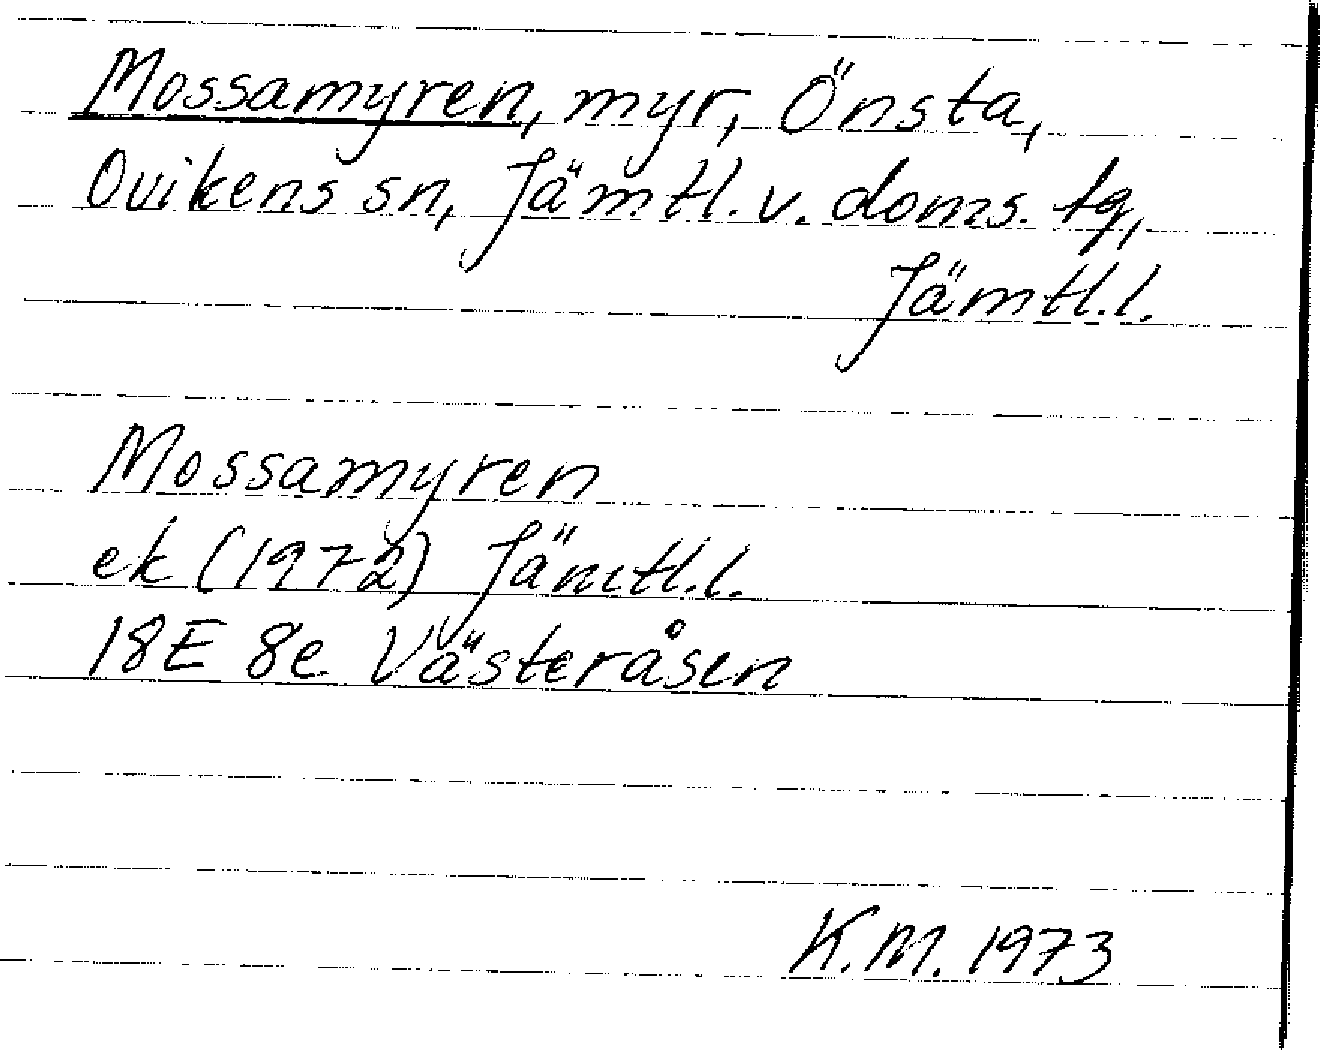 Mossamyren, myr, Önsta,
Ovikens sn, Jämtl. v. doms. tg,
Jämtl.l.
Mossamyren
ek (1972) Jämtl.l.
18E 8e Västeråsen
K.M. 1973